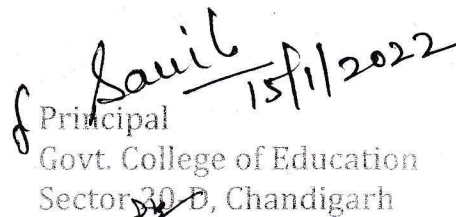 15/1/2022
Principal
Govt. College of Education
Sector 20-D, Chandigarh